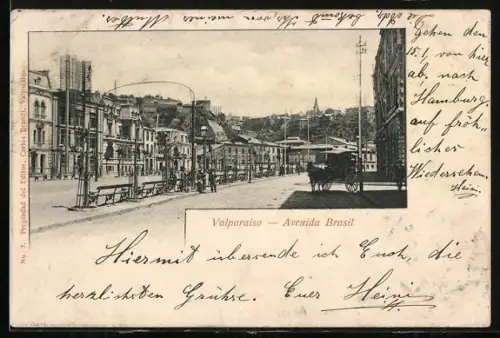 Gehen den
15./1. von hier
ab, nach
Hamburg.
auf fröh-
licher
Wiedersehen.
Heini
No. 7. Propiedad del Editor, Carlos Brandt, Valparaiso.
Valparaiso — Avenida Brasil
Hiermit übersende ich Euch, die
herzlichsten Grühse. Euer Heini